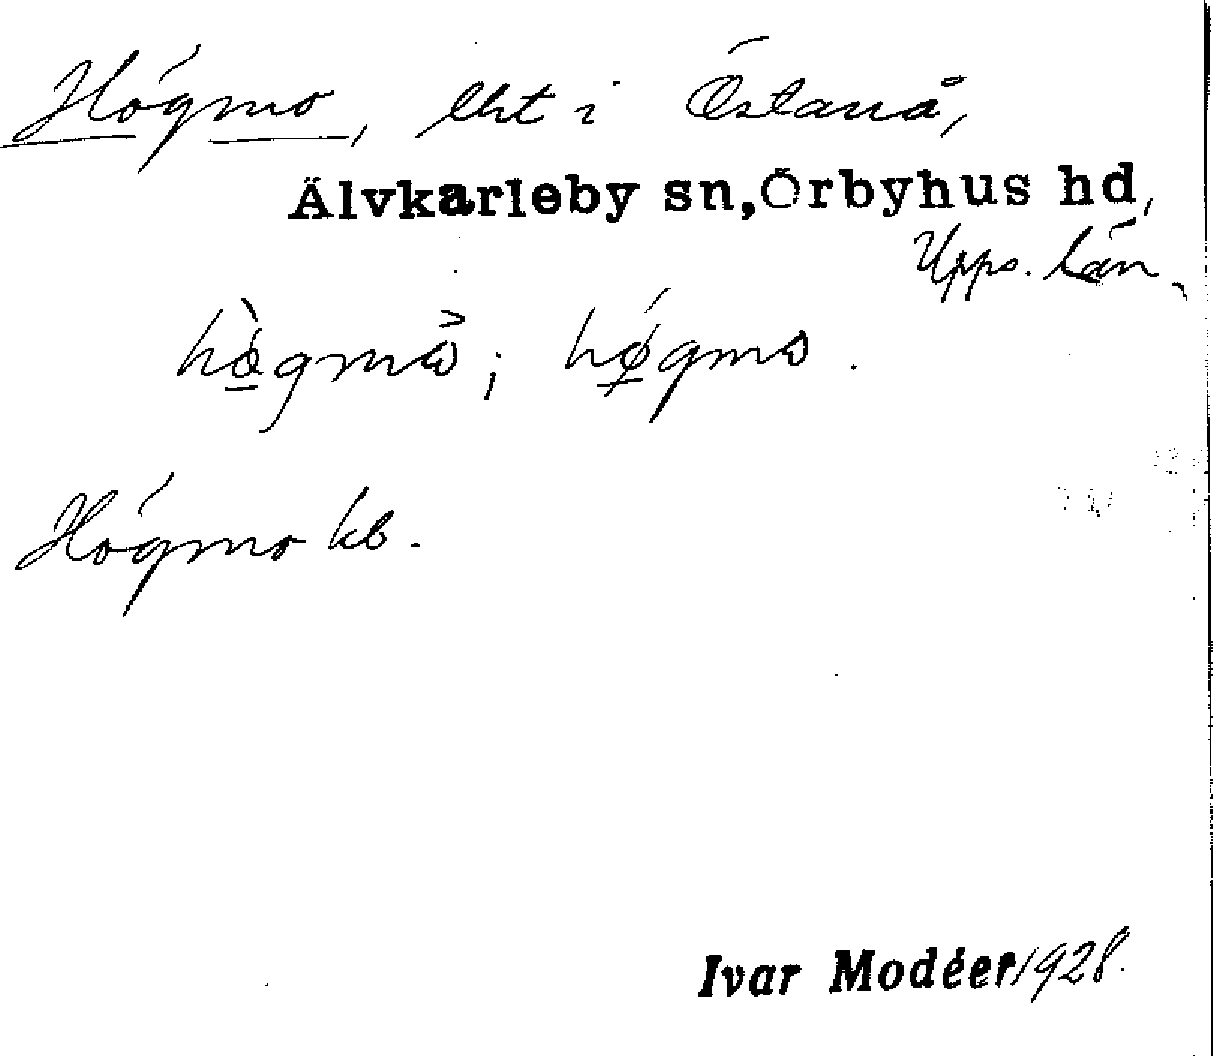 Högmo, lht i Östanå,
Älvkarleby sn, Örbyhus hd,
Upps. län.
hògmò; hǿgmo.
Högmo kb.
Ivar Modéer 1928.